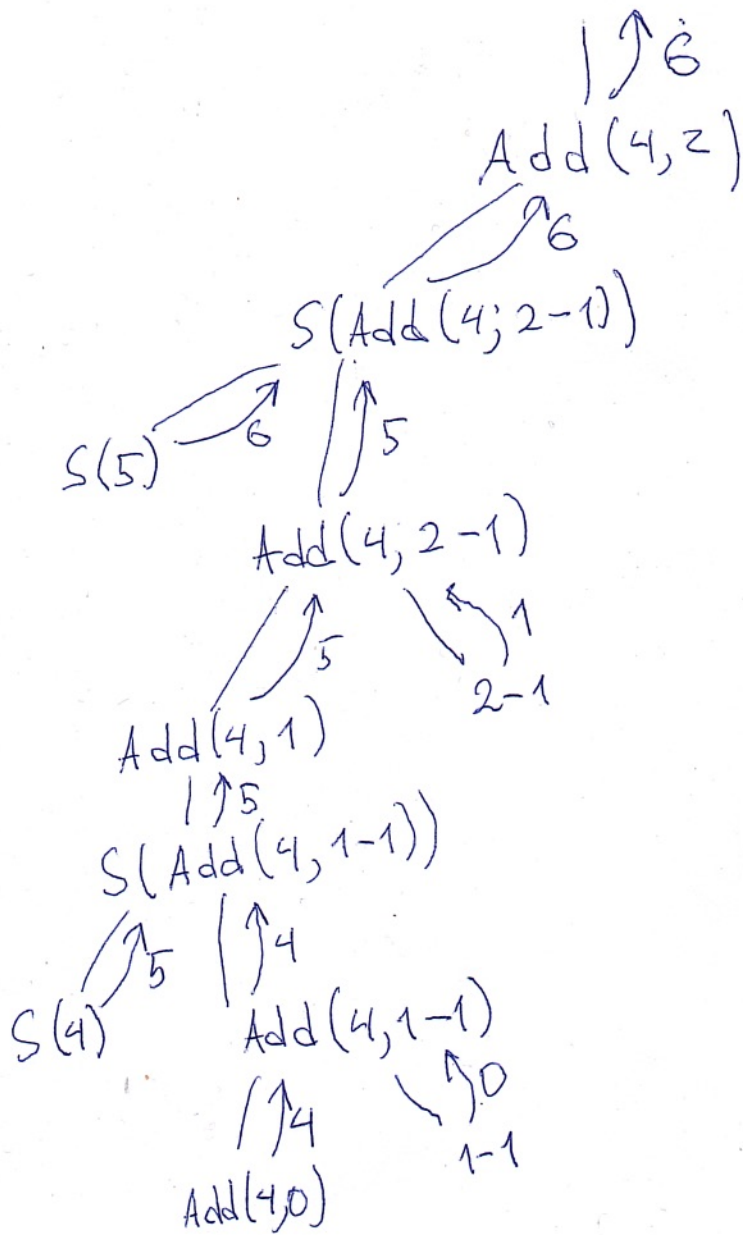 6
Add(4,2)
6
S(Add(4;2-1))
S(5) 6 5
Add(4;2-1)
5 1
2-1
Add(4,1)
5
S(Add(4,1-1))
5 4
S(4) Add(4,1-1)
4 0
1-1
Add(4,0)